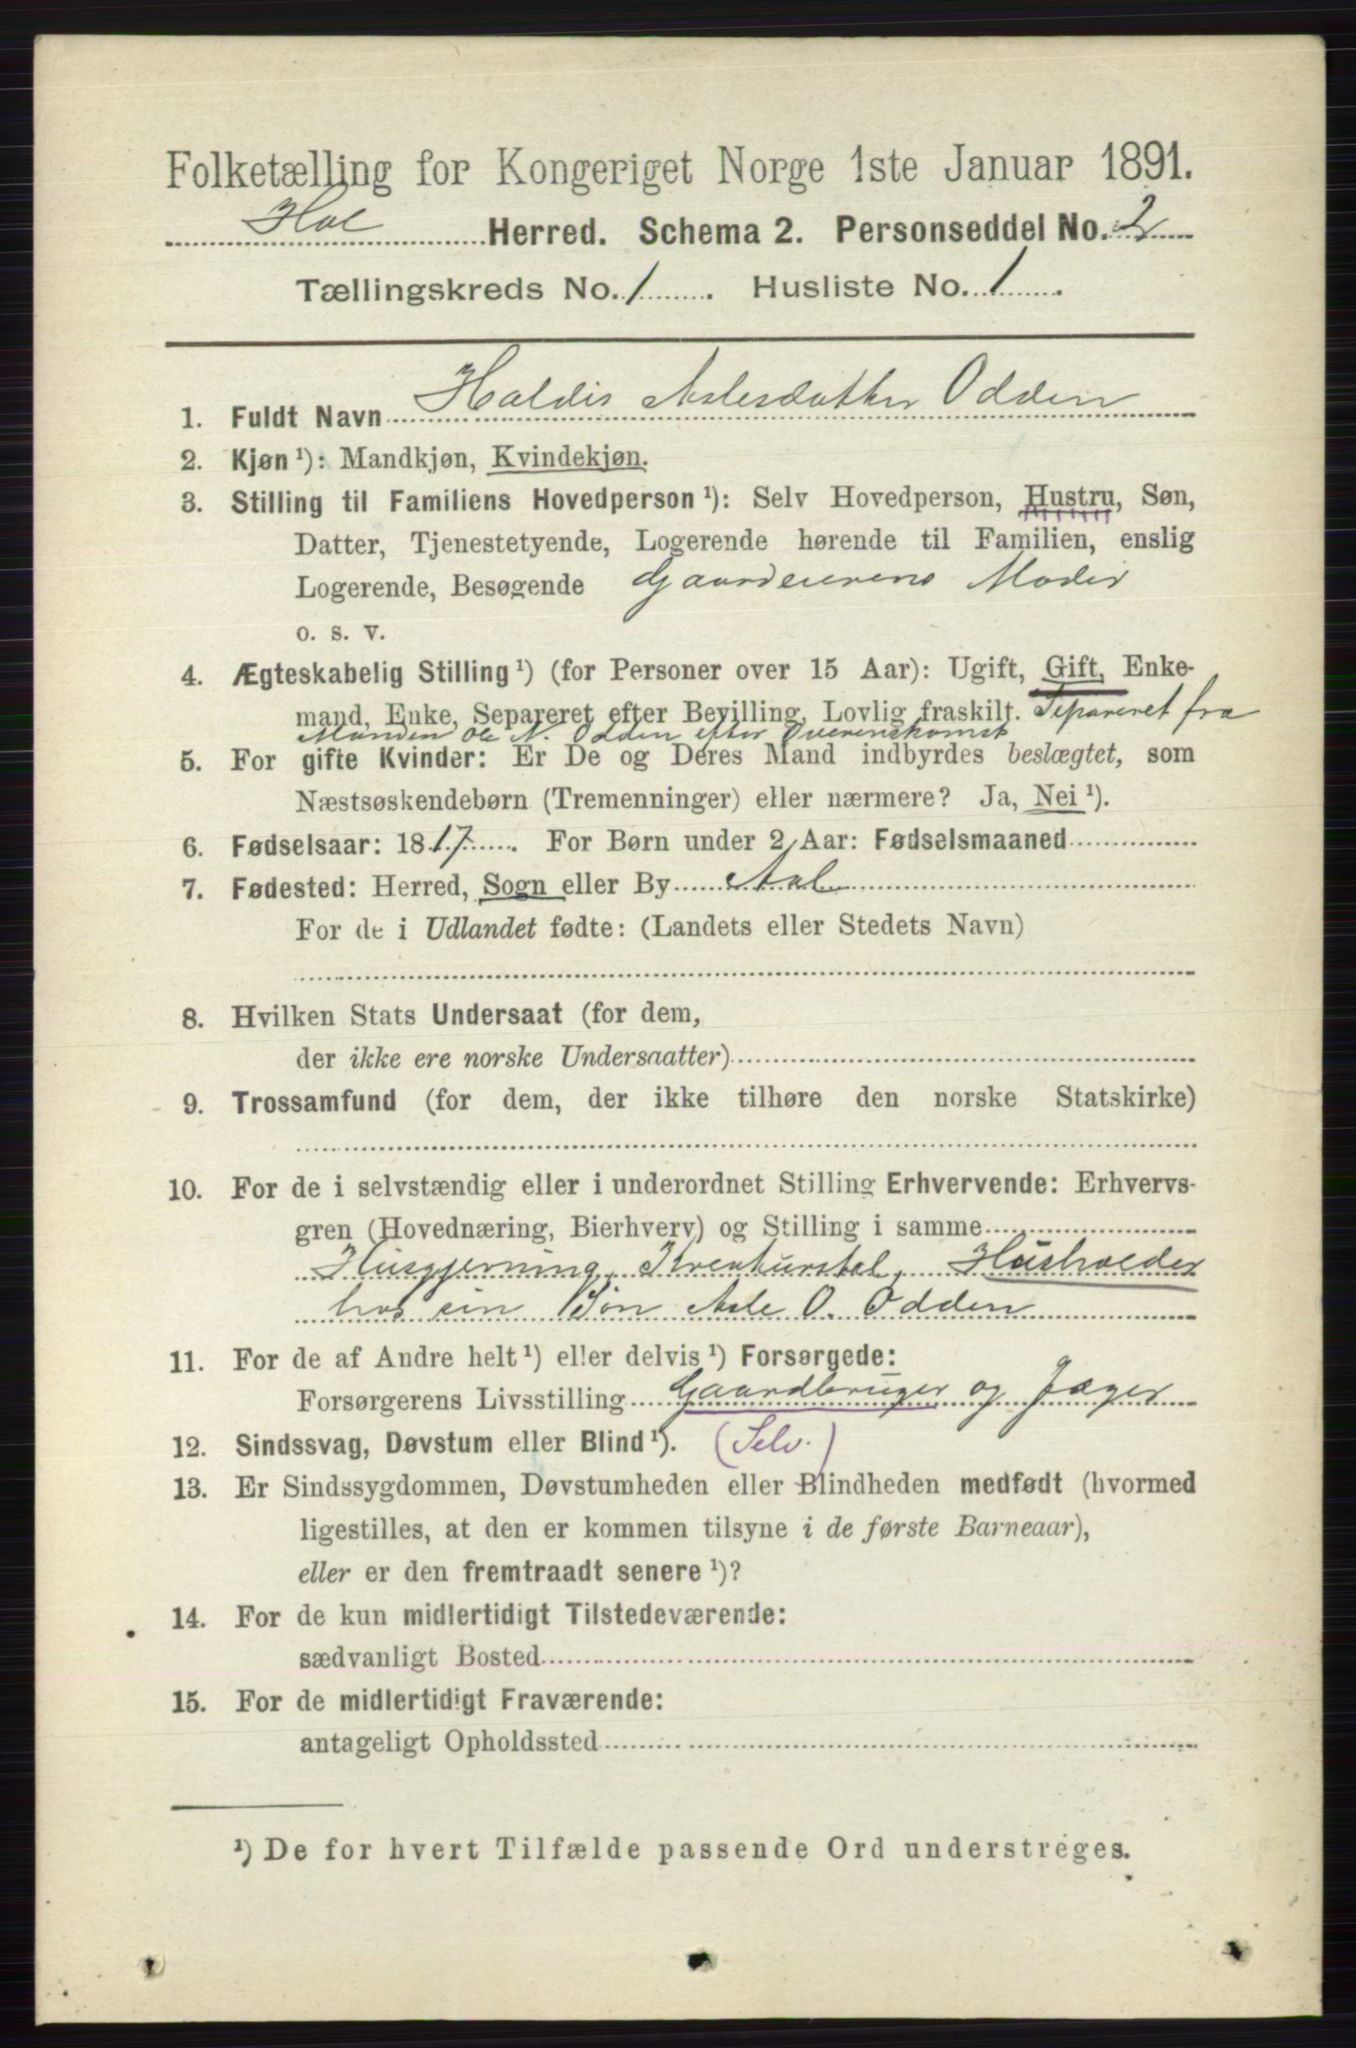 Folketælling for Kongeriget Norge 1ste Januar 1891.
Hol Herred. Schema 2. Personseddel No. 2
Tællingskreds No. 1. Husliste No. 1.
1. Fuldt Navn Haldis Aslesdatter Odden
2. Kjøn ¹): Mandkjøn, Kvindekjøn.
3. Stilling til Familiens Hovedperson ¹): Selv Hovedperson, Hustru, Søn,
Datter, Tjenestetyende, Logerende hørende til Familien, enslig
Logerende, Besøgende Gaardeierens Moder
o. s. v.
4. Ægteskabelig Stilling ¹) (for Personer over 15 Aar): Ugift, Gift, Enke-
mand, Enke, Separeret efter Bevilling, Lovlig fraskilt. Separeret fra
Manden Ole N. Odden efter Overenskomst
5. For gifte Kvinder: Er De og Deres Mand indbyrdes beslægtet, som
Næstsøskendebørn (Tremenninger) eller nærmere? Ja, Nei ¹).
6. Fødselsaar: 1817. For Børn under 2 Aar: Fødselsmaaned
7. Fødested: Herred, Sogn eller By Aal
For de i Udlandet fødte: (Landets eller Stedets Navn)
8. Hvilken Stats Undersaat (for dem,
der ikke ere norske Undersaatter)
9. Trossamfund (for dem, der ikke tilhøre den norske Statskirke)
10. For de i selvstændig eller i underordnet Stilling Erhvervende: Erhvervs-
gren (Hovednæring, Bierhverv) og Stilling i samme
Husgjerning, Kreaturstel, Husholder
hos sin Søn Asle O. Odden
11. For de af Andre helt ¹) eller delvis ¹) Forsørgede:
Forsørgerens Livsstilling Gaardbruger og Jæger
12. Sindssvag, Døvstum eller Blind ¹). (Selv.)
13. Er Sindssygdommen, Døvstumheden eller Blindheden medfødt (hvormed
ligestilles, at den er kommen tilsyne i de første Barneaar),
eller er den fremtraadt senere ¹)?
14. For de kun midlertidigt Tilstedeværende:
sædvanligt Bosted
15. For de midlertidigt Fraværende:
antageligt Opholdssted
¹) De for hvert Tilfælde passende Ord understreges.